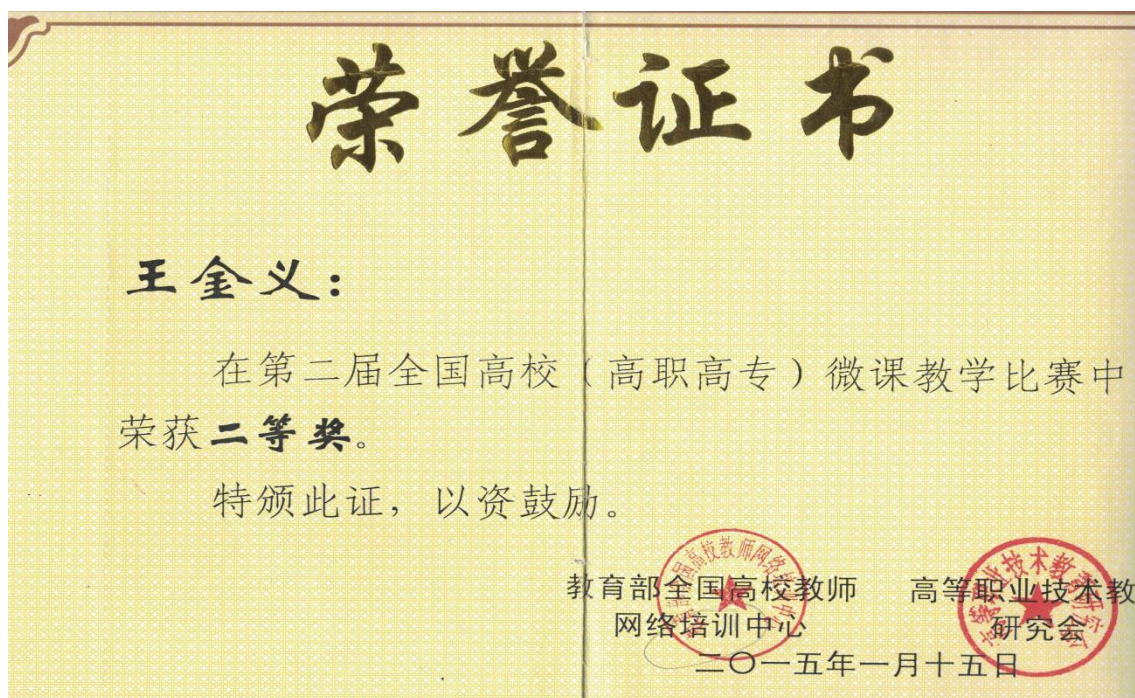 荣誉证书
王金义：
在第二届全国高校（高职高专）微课教学比赛中
荣获二等奖。
特颁此证，以资鼓励。
教育部全国高校教师 高等职业技术教
网络培训中心 研究会
二〇一五年一月十五日